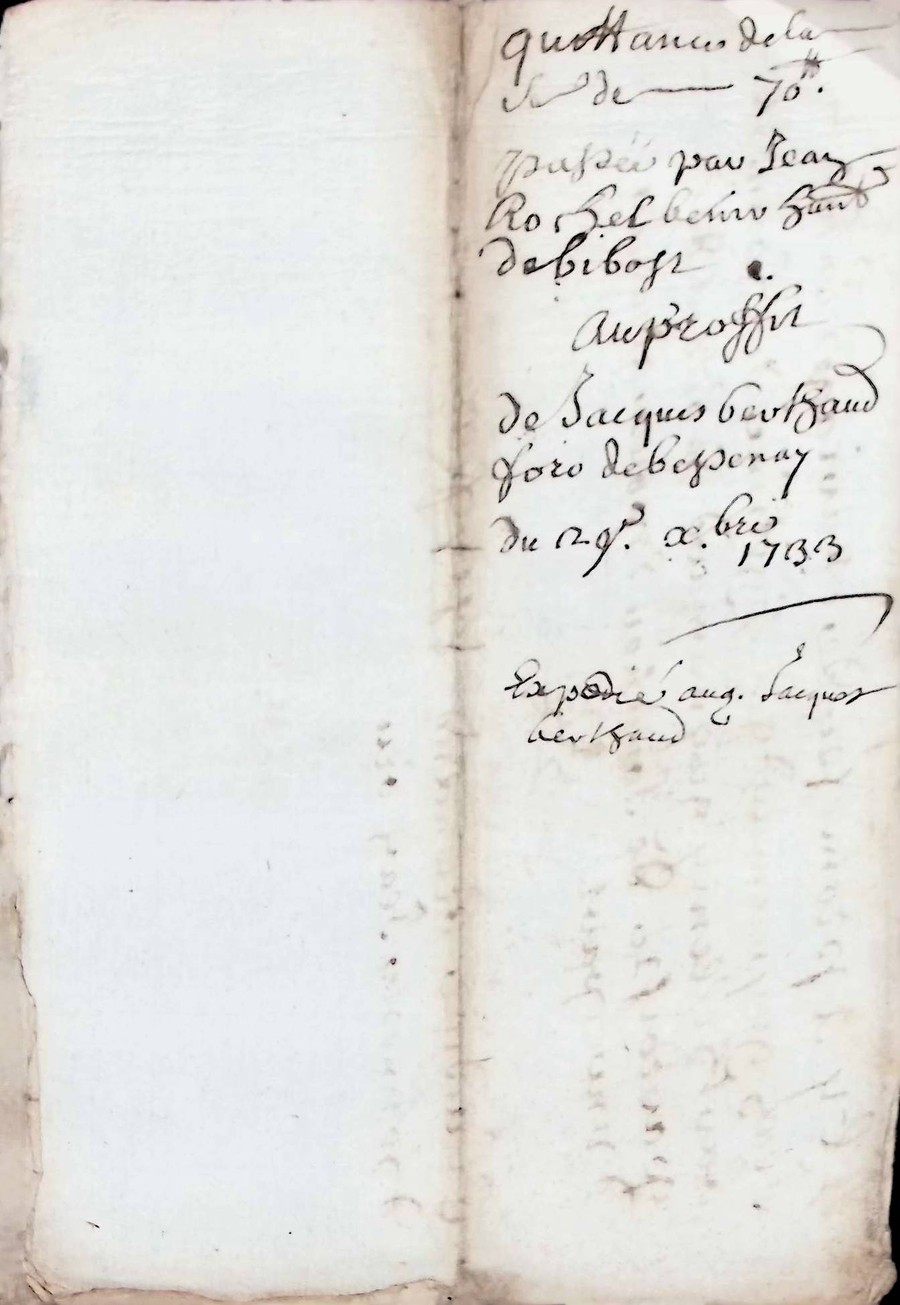 quittance de la
se de 70tt.
passée par Jean
Rochel
de bibost
au proffit
de Jacques berthaud
de bessenay
du 29e. xbre
1733
Expedié aud. Jacques
berthaud